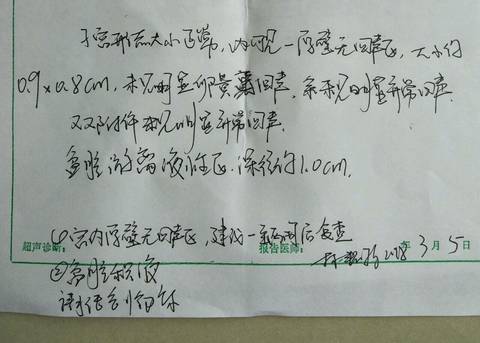 子宫形态大小正常，内可见一厚壁无回声区，大小约
0.9×0.8cm，未见明显卵黄囊回声，余未见明显异常回声
双附件未见明显异常回声
盆腔游离液性区，深径约1.0cm，
超声诊断：
①宫内厚壁无回声区，建议一周后复查
报告医师： 2018 年 3 月 5 日
②盆腔积液
请结合临床